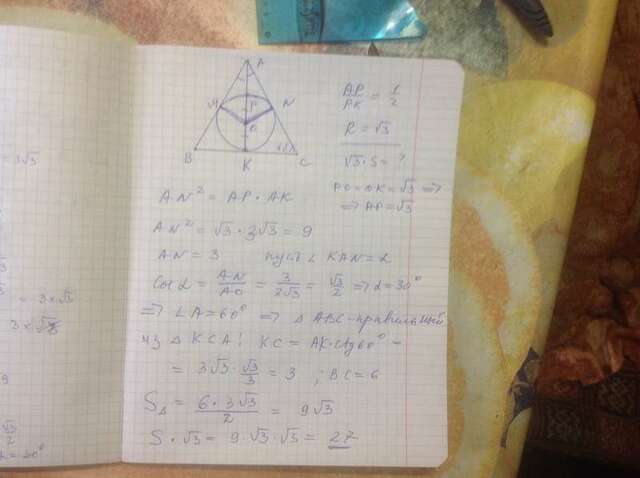 A
M P N
O
B K C
AP/PK = 1/2
R = √3
√3·S = ?
PO = OK = √3 ⇒
⇒ AP = √3
AN² = AP · AK
AN² = √3 · 3√3 = 9
AN = 3 пусть ∠ KAN = α
Cos α = AN/AO = 3/2√3 = √3/2 ⇒ α = 30°
⇒ ∠A = 60° ⇒ △ ABC - правильный
из △ KCA: KC = AK · ctg 60° =
= 3√3 · √3/3 = 3 ; BC = 6
S△ = 6 · 3√3/2 = 9√3
S · √3 = 9 · √3 · √3 = 27
= 3√3
= 3 × √3
3 ×
9
√3/2
= 30°